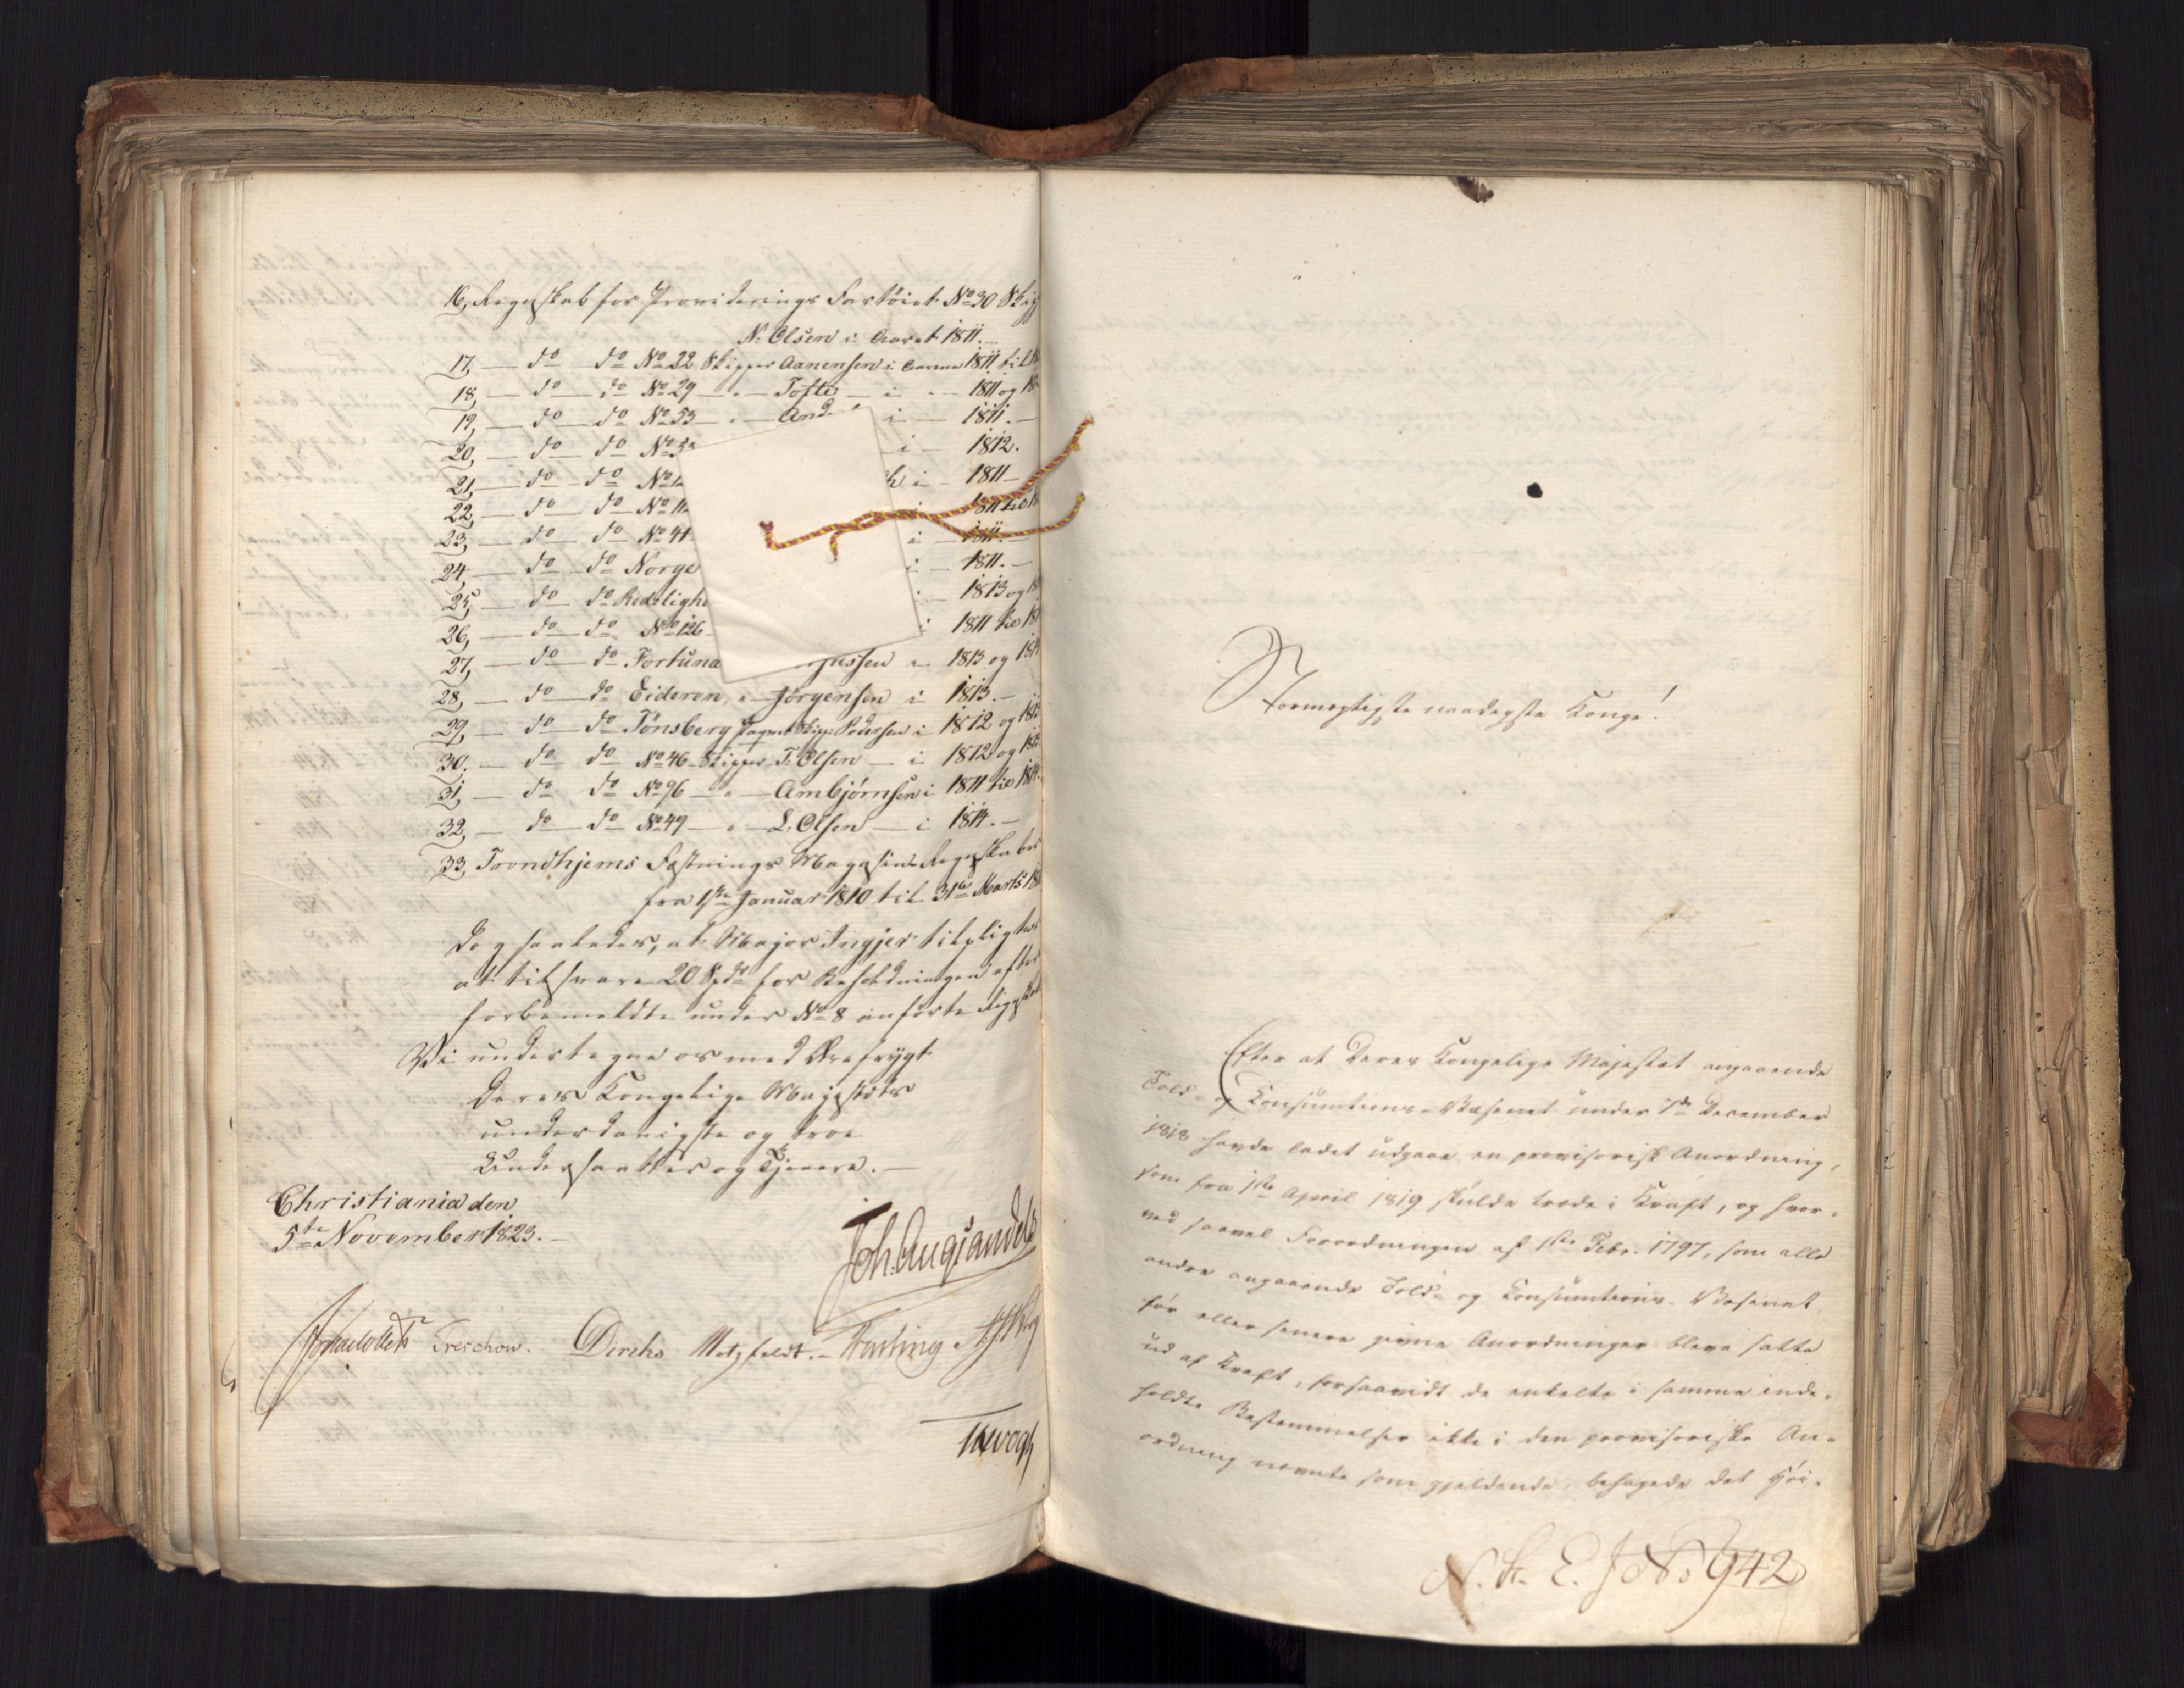 16, Regnskab for Provideringsfartöiet No 30 Skip
N. Olsen i Aaret 1811.
17, — do — do No 22 Skipper Aanensen i Aarene 1811 til
18, — do — do No 29 — " — Tofte — i — 1811 og
19, — do — do No 53 — " — And i — 1811.
20, — do — do No i — 1812.
21, — do — do No i — 1811 —
22, — do — do No 1811 til
23, — do — do No 41 i — 1811. —
24, — do — do Norge i — 1811. —
25, — do — do Redeligh i — 1813 og
26, — do — do No 126 i 1811 til
27, — do — do Fortuna i 1813 og 181
28, — do — do Eideren, " — Jörgensen i 1813. —
29, — do — do Tönsberg Skipp: Pedersen i 1812 og
30. — do — do No 46 Skipper T. Olsen — i 1812 og
31, — do — do No 96 — " — Ambjørnsen i 1811 til
32, — do — do No 49 — " — L. Olsen — i 1814. —
33, Trondhjems Fæstnings Magasins Regnskaber
fra 1ste Januar 1810 til 31te Marts
dog saaledes, at Major Ingjer tilpligtes
at tilsvare 20 Spd for Beholdningen efter
forbemeldte under No 8 anførte Regnskab
Vi undertegne os med Ærefrygt
Deres Kongelige Majestæts
underdanigste og troe
Undersaatter og Tjenere. —
Christiania den
5te November 1823. —
Joh. Aug. Sandels
Treschow. Diriks Motzfeldt. — Fasting
Stormægtigste naadigste Konge!
Efter at Deres Kongelige Majestæt angaaende
Told- og Consumtions-Væsenet under 7de December
1818 havde ladet udgaae en provisorisk Anordning,
som fra 1ste April 1819 skulde træde i Kraft, og hvor-
ved saavel Forordningen af 1ste Febr. 1797, som alle
andre angaaende Told- og Consumtions-Væsenet
før eller senere givne Anordninger bleve satte
ud af Kraft, forsaavidt de enkelte i samme inde-
holdte Bestemmelser ikke i den provisoriske An-
ordning nævnte som gjeldende, behagede det Höi-
N. St. E. J No 942